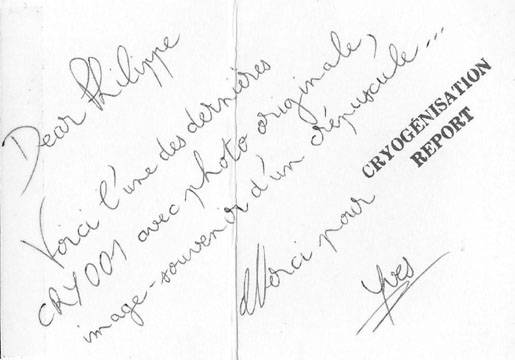 Dear Philippe
Voici l'une des dernières
CRY001 avec photo originale,
image-souvenir d'un crépuscule...
Merci pour
CRYOGÉNISATION
REPORT
Yves